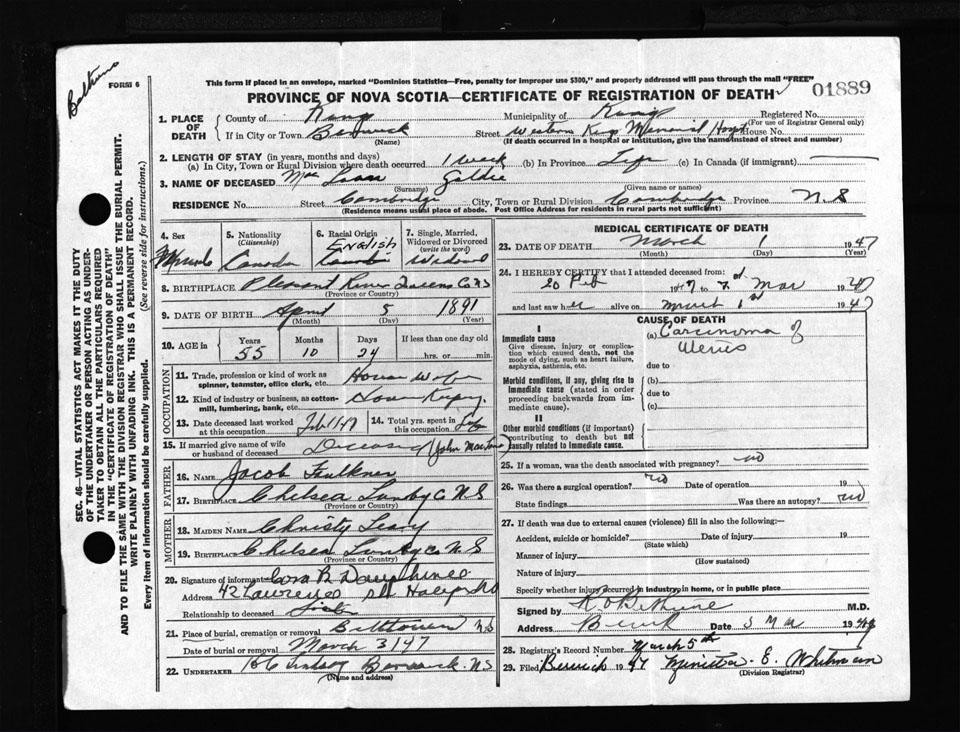 Bethune
FORM 6
This form if placed in an envelope, marked "Dominion Statistics—Free, penalty for improper use $300," and properly addressed will pass through the mail "FREE"
PROVINCE OF NOVA SCOTIA—CERTIFICATE OF REGISTRATION OF DEATH
01889
1. PLACE OF DEATH
County of Kings Municipality of Kings Registered No.
(For use of Registrar General only)
If in City or Town Berwick Street Western Kings Memorial Hospt House No.
(Name) (If death occurred in a hospital or institution, give the name instead of street and number)
2. LENGTH OF STAY (in years, months and days)
(a) In City, Town or Rural Division where death occurred 1 week (b) In Province Life (c) In Canada (if immigrant)
3. NAME OF DECEASED Mac Goldie
(Surname) (Given name or names)
RESIDENCE No. Street Cambridge City, Town or Rural Division Cambridge Province N.S
(Residence means usual place of abode. Post Office Address for residents in rural parts not sufficient)
SEC. 46—VITAL STATISTICS ACT MAKES IT THE DUTY
OF THE UNDERTAKER OR PERSON ACTING AS UNDER-
TAKER TO OBTAIN ALL THE PARTICULARS REQUIRED
IN THE "CERTIFICATE OF REGISTRATION OF DEATH"
AND TO FILE THE SAME WITH THE DIVISION REGISTRAR WHO SHALL ISSUE THE BURIAL PERMIT.
WRITE PLAINLY WITH UNFADING INK. THIS IS A PERMANENT RECORD.
(See reverse side for instructions.)
Every item of Information should be carefully supplied.
4. Sex
5. Nationality (Citizenship) Canada
6. Racial Origin English
7. Single, Married, Widowed or Divorced (write the word) Widowed
8. BIRTHPLACE Pleasant River Queens Co NS
(Province or Country)
9. DATE OF BIRTH April 5 1891
(Month) (Day) (Year)
10. AGE in Years Months Days If less than one day old
55 10 24 hrs. or min.
OCCUPATION
11. Trade, profession or kind of work as spinner, teamster, office clerk, etc. House wife
12. Kind of industry or business, as cotton-mill, lumbering, bank, etc.
13. Date deceased last worked at this occupation Feb 47
14. Total yrs. spent in this occupation Life
15. If married give name of wife or husband of deceased Deceased (John
FATHER
16. NAME Jacob Faulkner
17. BIRTHPLACE Chelsea Lunby Co N.S
(Province or Country)
MOTHER
18. MAIDEN NAME Christy Leary
19. BIRTHPLACE Chelsea Lunby Co N.S
(Province or Country)
20. Signature of informant Cora B Dauphinee
Address 42 Lawrence St Halifax
Relationship to deceased Sister
21. Place of burial, cremation or removal N.S
Date of burial or removal March 3/47
22. UNDERTAKER Lindsay Berwick NS
(Name and address)
MEDICAL CERTIFICATE OF DEATH
23. DATE OF DEATH March 1 1947
(Month) (Day) (Year)
24. I HEREBY CERTIFY that I attended deceased from
20 Feb 1947 to Mar 1947
and last saw her alive on March 1st 1947
CAUSE OF DEATH
I
Immediate cause
Give disease, injury or complication which caused death, not the mode of dying, such as heart failure, asphyxia, asthenia, etc.
(a) Carcinoma of Uterus
due to
Morbid conditions, if any, giving rise to immediate cause (stated in order proceeding backwards from immediate cause).
(b)
due to
(c)
II
Other morbid conditions (if important) contributing to death but not causally related to immediate cause.
25. If a woman, was the death associated with pregnancy? no
26. Was there a surgical operation? no Date of operation 19
State findings Was there an autopsy? no
27. If death was due to external causes (violence) fill in also the following:—
Accident, suicide or homicide? Date of injury 19
(State which)
Manner of injury
(How sustained)
Nature of injury
Specify whether injury occurred in industry, in home, or in public place
Signed by R O Bethune M.D.
Address Berwick Date 3 Mar 19
28. Registrar's Record Number March 5th
29. Filed Berwick 1947 E. Whitman
(Division Registrar)